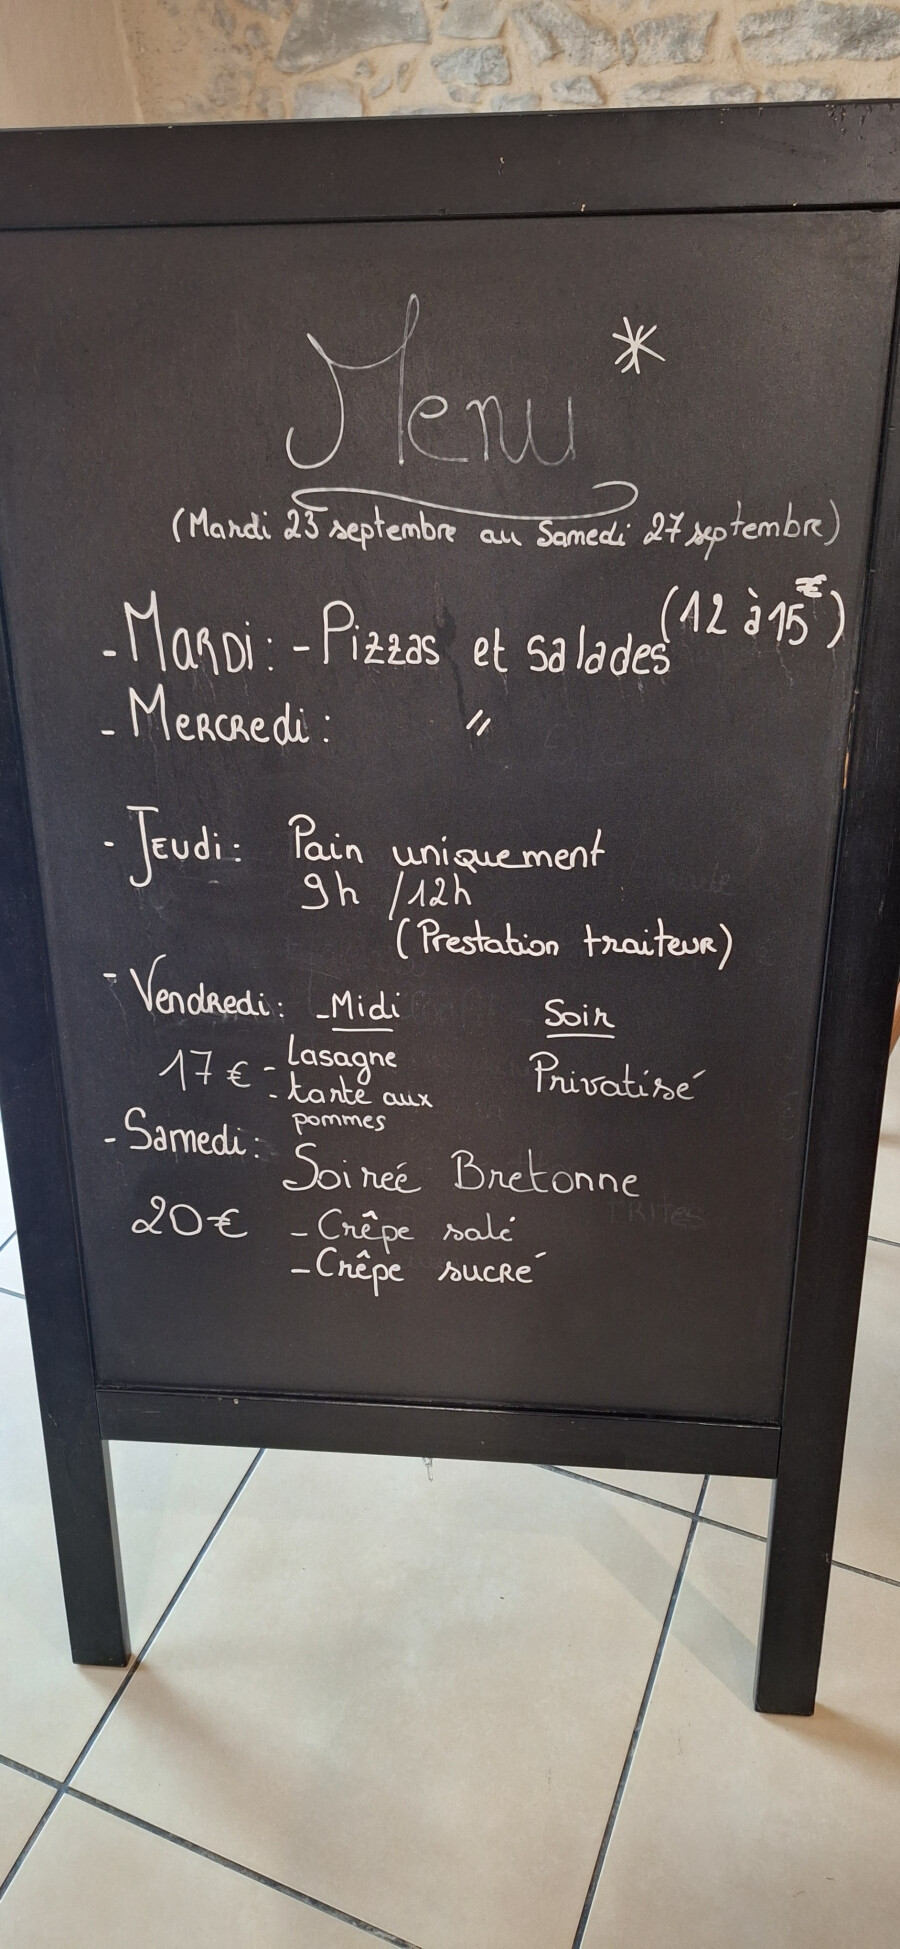 Menu *
(Mardi 23 septembre au Samedi 27 septembre)
- Mardi : - Pizzas et salades (12 à 15€)
- Mercredi : "
- Jeudi : Pain uniquement
9h / 12h
(Prestation traiteur)
- Vendredi : - Midi Soir
17 € - Lasagne Privatisé
- tarte aux
pommes
- Samedi : Soireé Bretonne
20 € - Crêpe salé
- Crêpe sucré